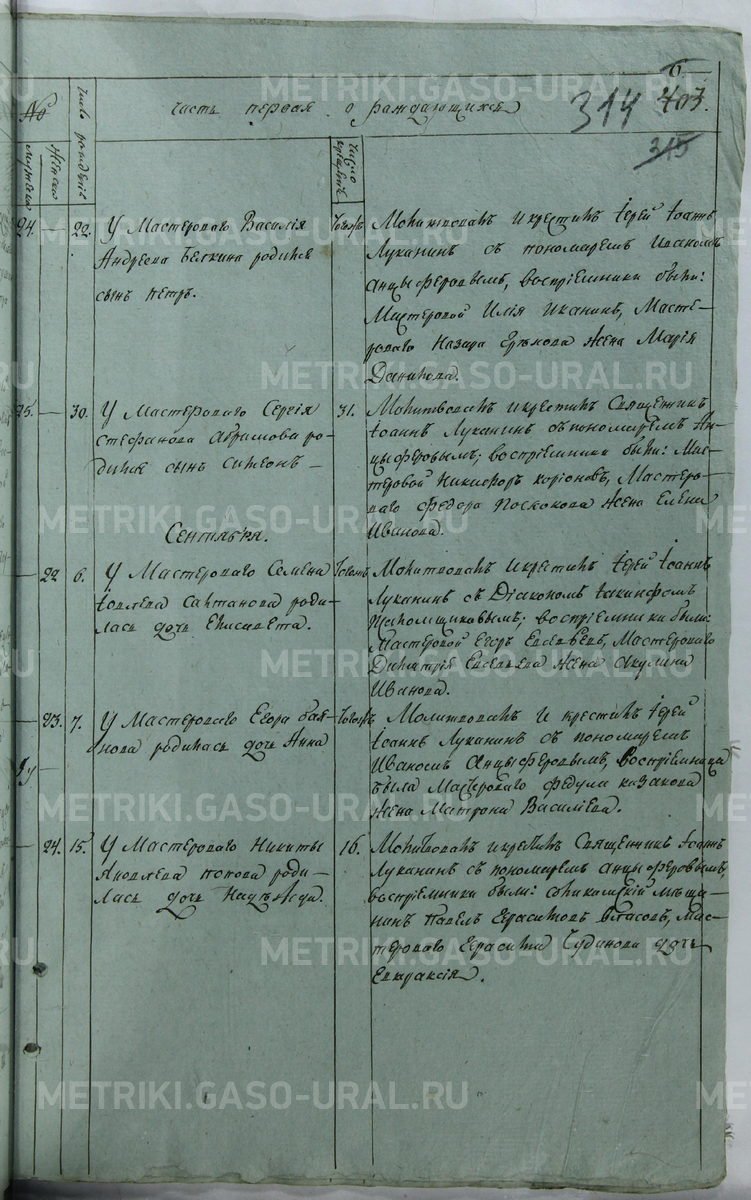 6
314 403.
315
№
мужеска
женска
число рождения
Часть первая о раждающихся
число крещения
24. — 22. У Мастероваго Василія
Андреева Белкина родился
сынъ Петръ.
Тогожъ
Молитвовалъ и крестилъ Іерей Іоаннъ
Луканинъ съ пономаремъ Иваномъ
Анцыферовымъ, воспріемники были:
Мастеровой Илія Иканинъ, Масте-
роваго Назара жена Марія
Данилова.
25. — 30. У Мастероваго Сергія
Стефанова Абрамова ро-
дился сынъ Симеонъ —
31.
Молитвовалъ и крестилъ Священникъ
Іоаннъ Луканинъ съ пономаремъ Ан-
цыферовымъ; воспріемники были: Мас-
теровой Никифоръ Корионовъ, Мастеро-
ваго Федора Поскокова жена Елена
Иванова.
Сентября.
— 22 6. У Мастероваго Семена
Іовлева Салтанова роди-
лась дочь Елисавета.
Тогожъ
Молитвовалъ и крестилъ Іерей Іоаннъ
Луканинъ съ Діакономъ Іакинфомъ
воспріемники были:
Мастеровой Егоръ Евсевьевъ, Мастероваго
Димитрія Евсевьева жена Акулина
Иванова.
— 23. 7. У Мастероваго Егора Бая-
нова родилась дочь Анна
Тогожъ
Молитвовалъ и крестилъ Іерей
Іоаннъ Луканинъ съ пономаремъ
Иваномъ Анцыферовымъ, Воспріемница
была Мастероваго Федула Казакова
жена Матрона Василіева.
— 24. 15. У Мастероваго Никиты
Яковлева Попова роди-
лась дочь Надежда.
16.
Молитвовалъ и крестилъ Священникъ Іоаннъ
Луканинъ съ пономаремъ Анцыферовымъ,
воспріемники были: соликамскій мѣща-
нинъ Павелъ Герасимовъ Власовъ, Мас-
тероваго Герасима Чудинова дочь
Евпраксія.
METRIKI.GASO-URAL.RU